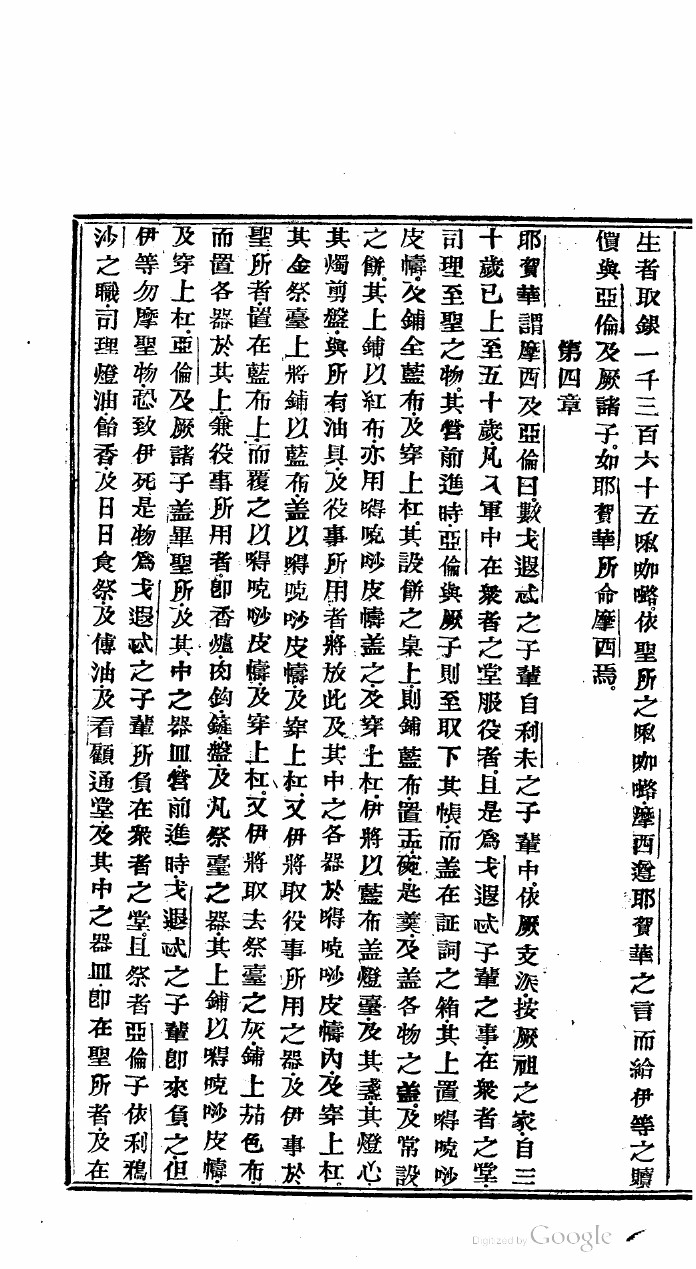 生者取銀一千三百六十五𠸄咖𠸄依聖所之𠸄咖𠸄摩西遵耶賀華之言而給伊等之贖
價與亞倫及厥諸子。如耶賀華所命摩西焉。
第四章
耶賀華謂摩西及亞倫曰數戈遐忒之子輩自利未之子輩中依厥支派按厥祖之家自三
十歲已上至五十歲凡入軍中在衆者之堂服役者且是爲戈遐忒子輩之事在衆者之堂
司理至聖之物其營前進時亞倫與厥子則至取下其帳而盖在証詞之箱其上置㗂唍唦
皮幬及鋪全藍布及穿上杠其設餅之桌上則鋪藍布置盂碗匙羹及盖各物之盖及常設
之餅其上鋪以紅布亦用㗂唍唦皮幬盖之及穿上杠伊將以藍布盖燈臺及其盞其燈心
其燭剪盤與所有油具及役事所用者將放此及其中之各器於㗂唍唦皮幬內及穿上杠
其金祭臺上將鋪以藍布盖以㗂唍唦皮幬及穿上杠又伊將取役事所用之器及伊事於
聖所者置在藍布上而覆之以㗂唍唦皮幬及穿上杠又伊將取去祭臺之灰鋪上茄色布
而置各器於其上兼役事所用者卽香爐肉鈎鏟盤及凡祭臺之器其上鋪以㗂唍唦皮幬
及穿上杠亞倫及厥諸子盖畢聖所及其中之器皿營前進時戈遐忒之子輩卽來負之但
伊等勿摩聖物恐致伊死是物爲戈遐忒之子輩所負在衆者之堂且祭者亞倫子依利鴉
沙之職司理燈油飴香及日日食祭及傅油及看顧通堂及其中之器皿卽在聖所者及在
Digitized by Google